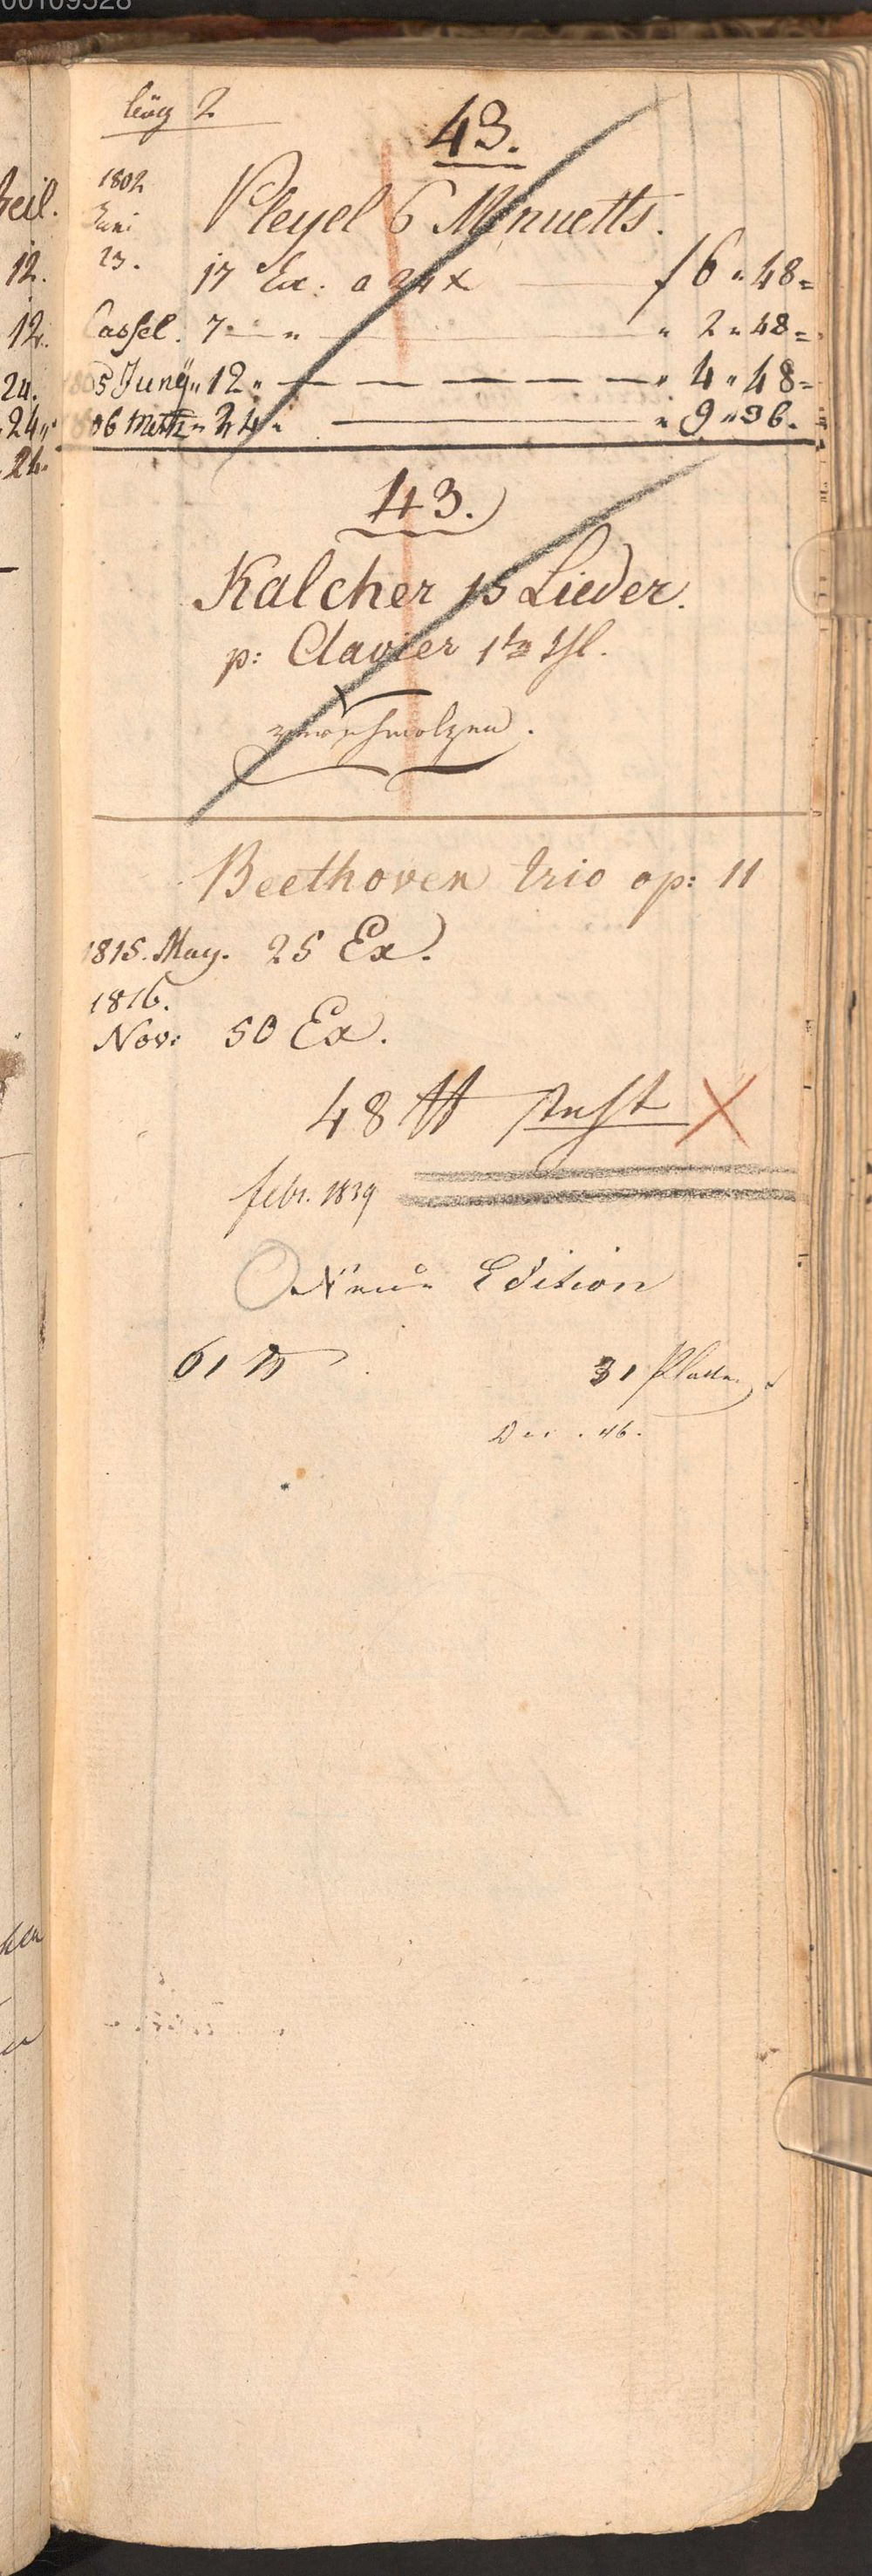 00109528
43.
1802
Juni Pleyel 6 Menuetts.
23. 17 Ex: a 24 x f 6 " 48 =
Cassel. 7 " " 2 " 48 =
5 Juny " 12 " " 4 " 48 =
06 Mertz " 24 " " 9 " 36.
43.
Kalcher 15 Lieder.
p: Clavier 1ter Thl.
zerschmolzen.
Beethoven trio op: 11
1815. May. 25 Ex.
1816.
Nov: 50 Ex.
48 ℔
febr. 1839
Neue Edition
61 ℔ 31 Platten
Dec. 46.
eil.
12.
12.
24.
24 "
24.